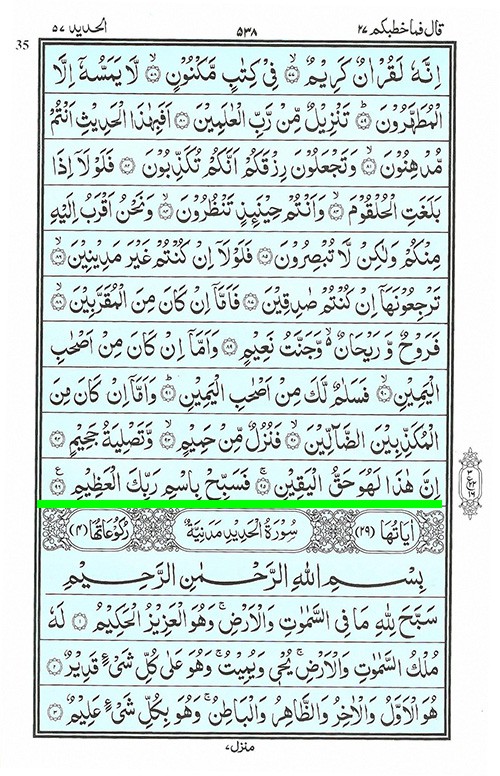 35
قال فما خطبكم ٢٧ ٥٣٨ الحديد ٥٧
اِنَّهٗ لَقُرْاٰنٌ كَرِيْمٌ ۙ﴿٧٧﴾ فِىْ كِتٰبٍ مَّكْنُوْنٍ ۙ﴿٧٨﴾ لَّا يَمَسُّهٗۤ اِلَّا
الْمُطَهَّرُوْنَ ؕ﴿٧٩﴾ تَنْزِيْلٌ مِّنْ رَّبِّ الْعٰلَمِيْنَ ﴿٨٠﴾ اَفَبِهٰذَا الْحَدِيْثِ اَنْتُمْ
مُّدْهِنُوْنَ ۙ﴿٨١﴾ وَتَجْعَلُوْنَ رِزْقَكُمْ اَنَّكُمْ تُكَذِّبُوْنَ ﴿٨٢﴾ فَلَوْلَاۤ اِذَا
بَلَغَتِ الْحُلْقُوْمَ ۙ﴿٨٣﴾ وَاَنْتُمْ حِيْنَئِذٍ تَنْظُرُوْنَ ۙ﴿٨٤﴾ وَنَحْنُ اَقْرَبُ اِلَيْهِ
مِنْكُمْ وَلٰكِنْ لَّا تُبْصِرُوْنَ ﴿٨٥﴾ فَلَوْلَاۤ اِنْ كُنْتُمْ غَيْرَ مَدِيْنِيْنَ ۙ﴿٨٦﴾
تَرْجِعُوْنَهَاۤ اِنْ كُنْتُمْ صٰدِقِيْنَ ﴿٨٧﴾ فَاَمَّاۤ اِنْ كَانَ مِنَ الْمُقَرَّبِيْنَ ۙ﴿٨٨﴾
فَرَوْحٌ وَّ رَيْحَانٌ ۙ۬ وَّجَنَّتُ نَعِيْمٍ ﴿٨٩﴾ وَاَمَّاۤ اِنْ كَانَ مِنْ اَصْحٰبِ
الْيَمِيْنِ ۙ﴿٩٠﴾ فَسَلٰمٌ لَّكَ مِنْ اَصْحٰبِ الْيَمِيْنِ ؕ﴿٩١﴾ وَاَمَّاۤ اِنْ كَانَ مِنَ
الْمُكَذِّبِيْنَ الضَّآلِّيْنَ ۙ﴿٩٢﴾ فَنُزُلٌ مِّنْ حَمِيْمٍ ۙ﴿٩٣﴾ وَّتَصْلِيَةُ جَحِيْمٍ ﴿٩٤﴾
اِنَّ هٰذَا لَهُوَ حَقُّ الْيَقِيْنِ ۚ﴿٩٥﴾ فَسَبِّحْ بِاسْمِ رَبِّكَ الْعَظِيْمِ ﴿٩٦﴾ ع
اٰيَاتُهَا (٢٩) سُوْرَةُ الْحَدِيْدِ مَدَنِيَّةٌ رُكُوْعَاتُهَا (٤)
بِسْمِ اللّٰهِ الرَّحْمٰنِ الرَّحِيْمِ
سَبَّحَ لِلّٰهِ مَا فِى السَّمٰوٰتِ وَالْاَرْضِ ۚ وَهُوَ الْعَزِيْزُ الْحَكِيْمُ ﴿١﴾ لَهٗ
مُلْكُ السَّمٰوٰتِ وَالْاَرْضِ ۚ يُحْىٖ وَيُمِيْتُ ۚ وَهُوَ عَلٰى كُلِّ شَىْءٍ قَدِيْرٌ ﴿٢﴾
هُوَ الْاَوَّلُ وَالْاٰخِرُ وَالظَّاهِرُ وَالْبَاطِنُ ۚ وَهُوَ بِكُلِّ شَىْءٍ عَلِيْمٌ ﴿٣﴾
منزل ٧